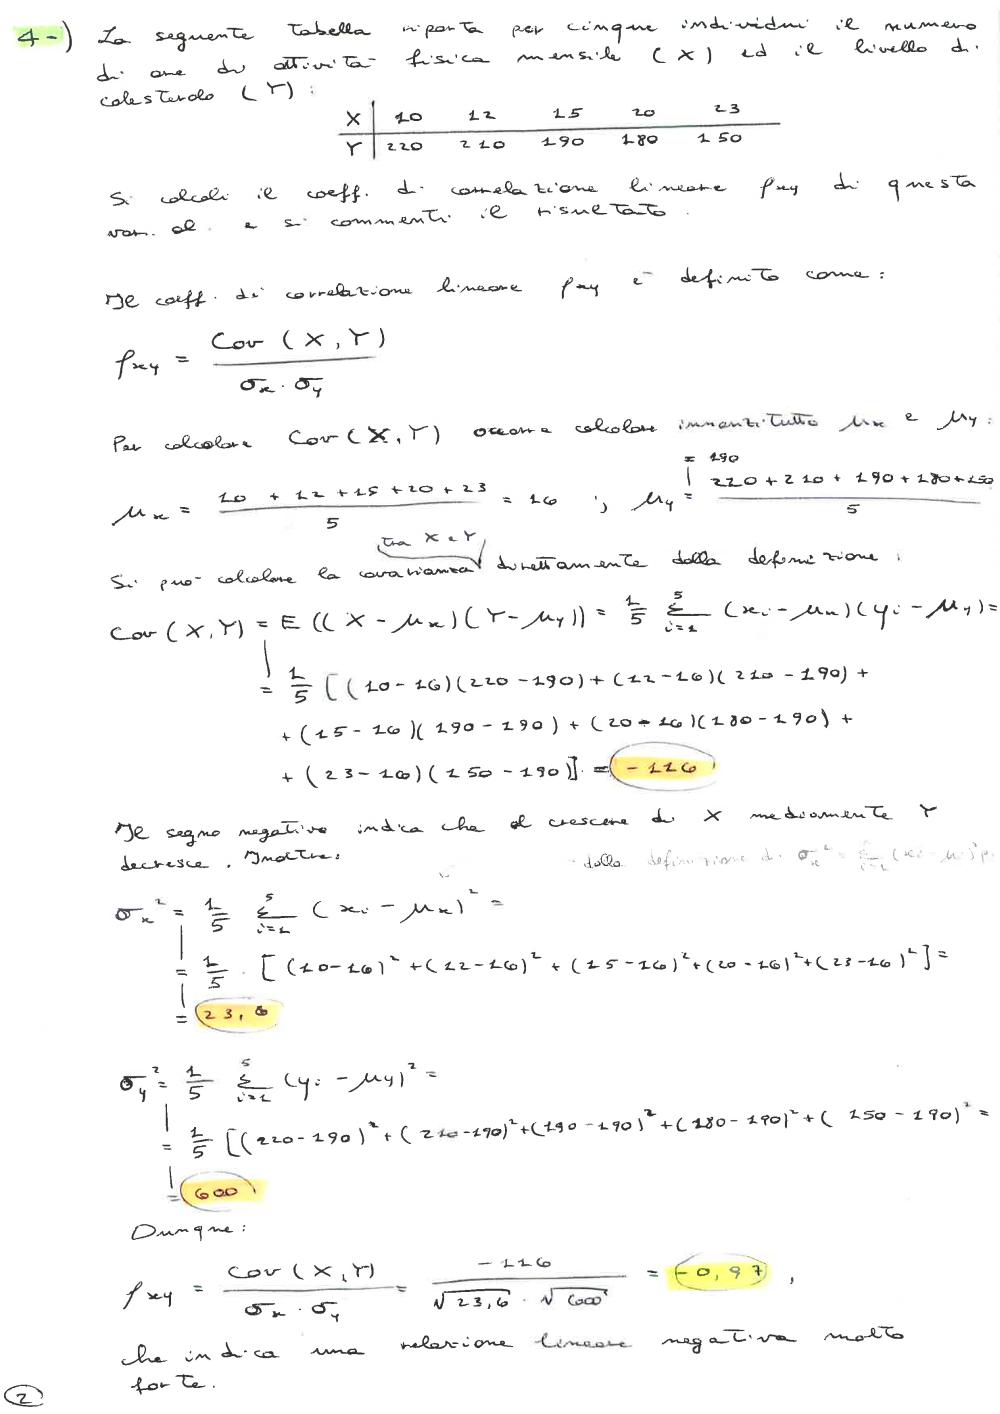 4-) La seguente tabella riporta per cinque individui il numero
di ore di attività fisica mensile (X) ed il livello di
colesterolo (Y):
X | 10 12 15 20 23
Y | 220 210 190 180 150
Si calcoli il coeff. di correlazione lineare ρxy di questa
var. al. e si commenti il risultato.
Il coeff. di correlazione lineare ρxy è definito come:
ρxy = Cov (X, Y) / σx · σy
Per calcolare Cov (X, Y) occorre calcolare innanzitutto μx e μy:
μx = (10 + 12 + 15 + 20 + 23) / 5 = 16 ; μy = (220 + 210 + 190 + 180 + 150) / 5
= 190
tra X e Y
Si può calcolare la covarianza direttamente dalla definizione:
Cov (X, Y) = E ((X - μx)(Y - μy)) = 1/5 Σ i=1 5 (xi - μx)(yi - μy) =
= 1/5 [(10-16)(220-190) + (12-16)(210-190) +
+ (15-16)(190-190) + (20-16)(180-190) +
+ (23-16)(150-190)] = -116
Il segno negativo indica che al crescere di X mediamente Y
decresce. Inoltre: dalla definizione di σx² =
σx² = 1/5 Σ i=1 5 (xi - μx)² =
= 1/5 · [(10-16)² + (12-16)² + (15-16)² + (20-16)² + (23-16)²] =
= 23,6
σy² = 1/5 Σ i=1 5 (yi - μy)² =
= 1/5 [(220-190)² + (210-190)² + (190-190)² + (180-190)² + (150-190)² =
= 600
Dunque:
ρxy = Cov (X, Y) / σx · σy = -116 / √23,6 · √600 = -0,97 ,
che indica una relazione lineare negativa molto
forte.
2